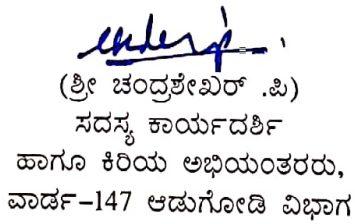 (ಶ್ರೀ ಚಂದ್ರಶೇಖರ್ .ಪಿ)
ಸದಸ್ಯ ಕಾರ್ಯದರ್ಶಿ
ಹಾಗೂ ಕಿರಿಯ ಅಭಿಯಂತರರು,
ವಾರ್ಡ-147 ಆಡುಗೋಡಿ ವಿಭಾಗ